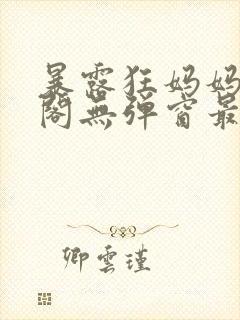 暴露狂妈妈
阁無弹窗最
卿雲瑾